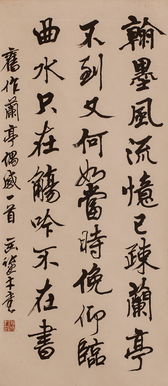 翰墨風流憶已疎蘭亭
不到又何如當時俛仰臨
曲水只在觴吟不在書
舊作蘭亭偶感一首